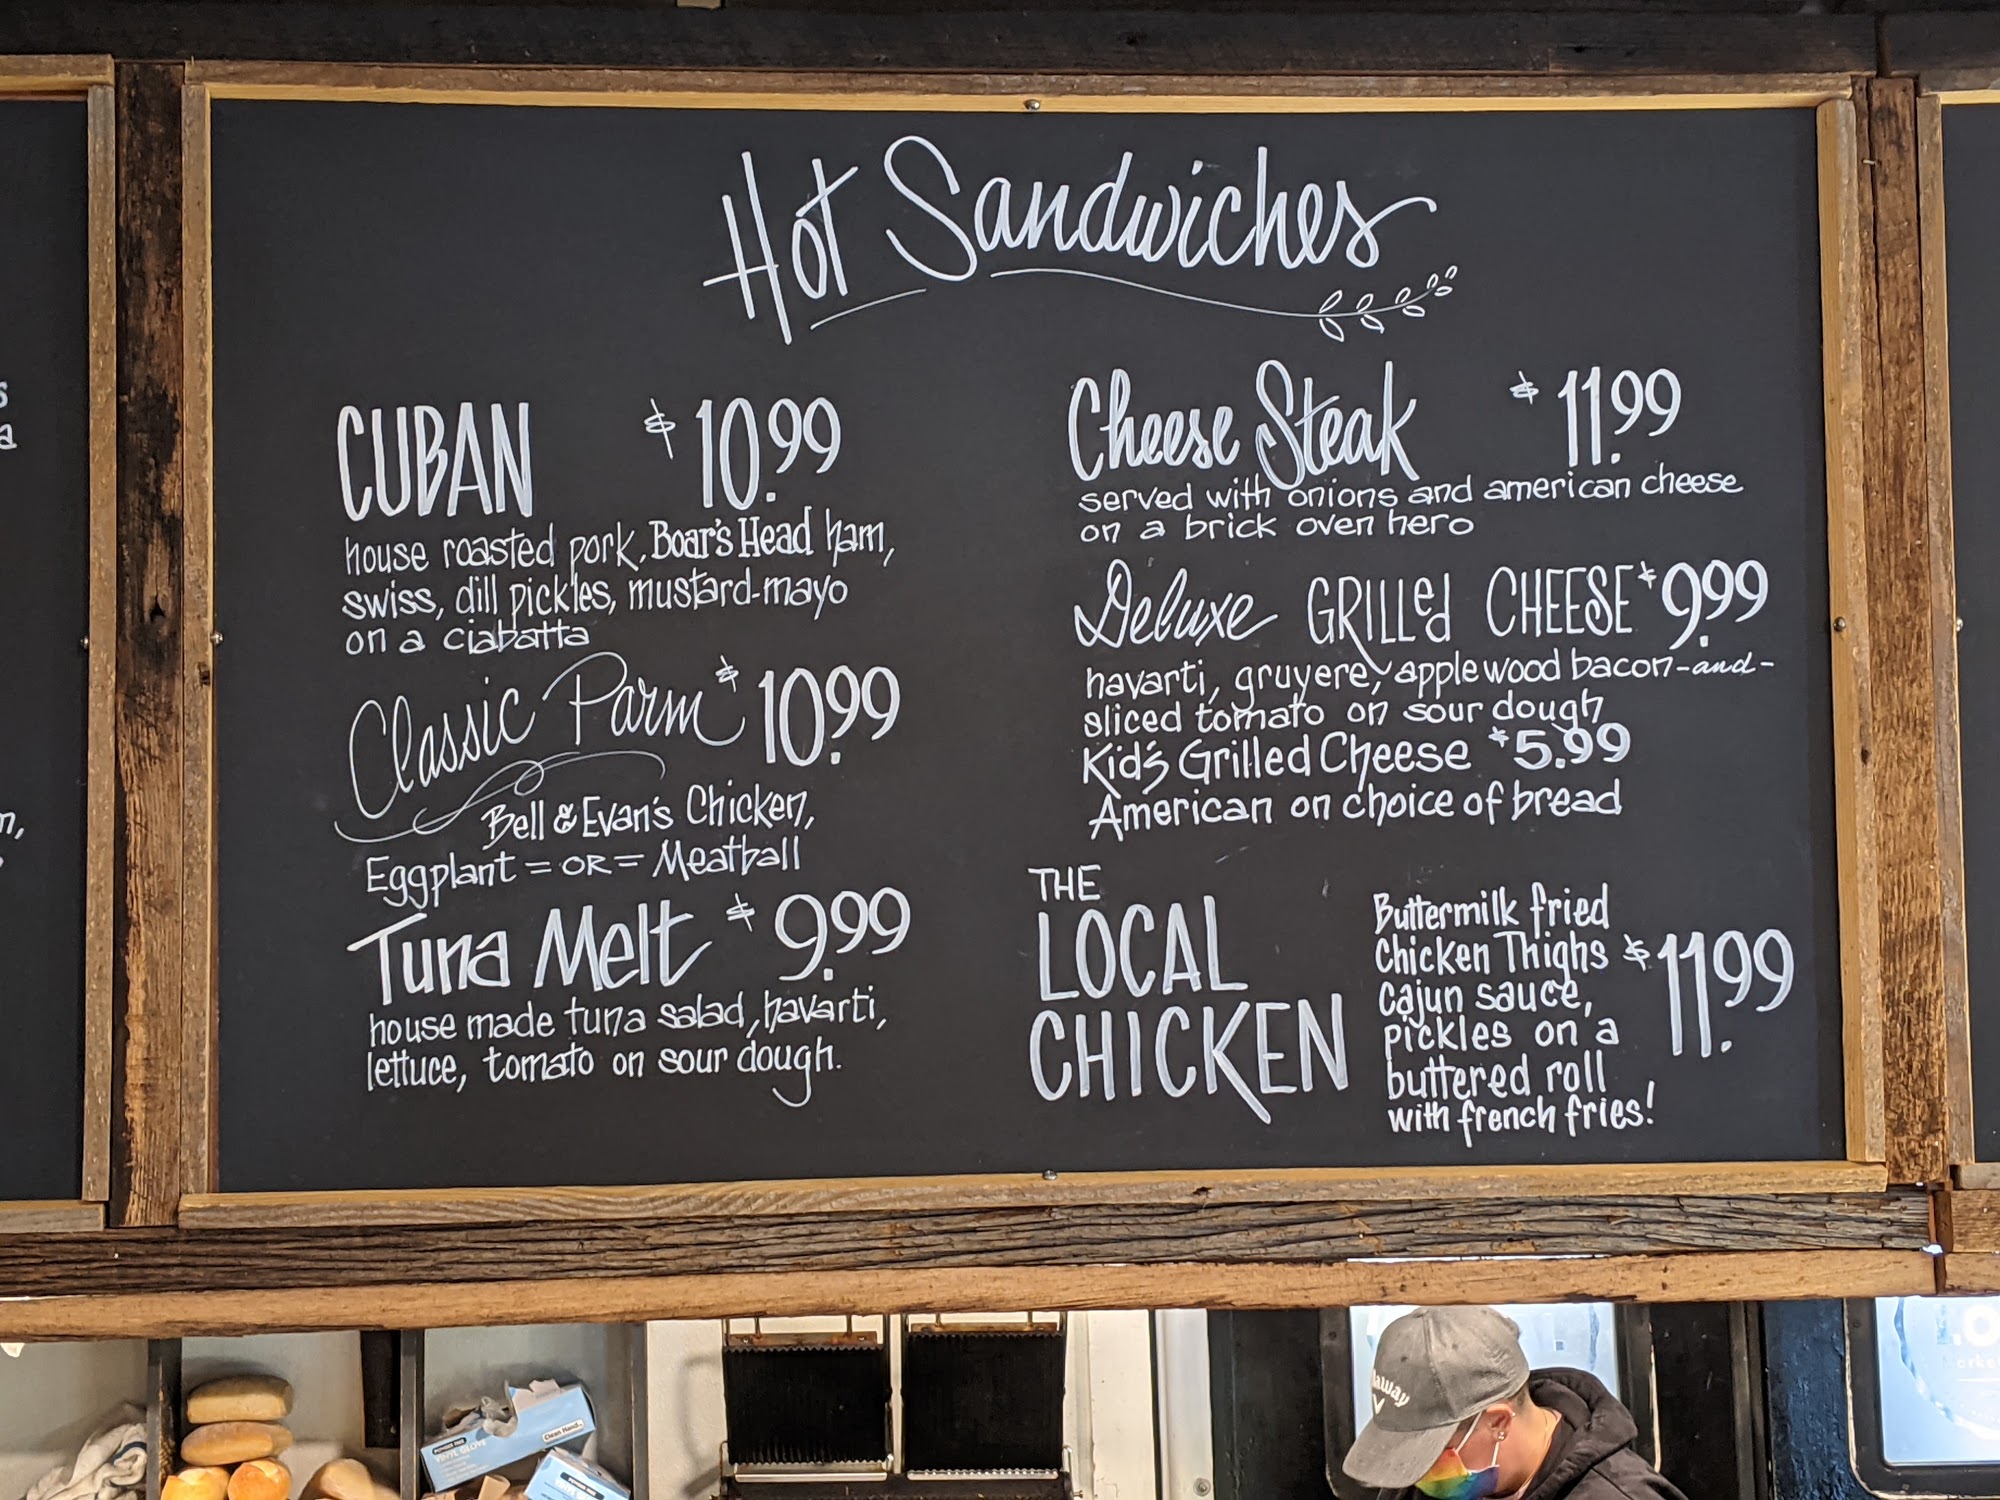 Hot Sandwiches
CUBAN $10.99
house roasted pork, Boar's Head ham,
swiss, dill pickles, mustard-mayo
on a ciabatta
Classic Parm $10.99
Bell & Evan's Chicken,
Eggplant = OR = Meatball
Tuna Melt $9.99
house made tuna salad, havarti,
lettuce, tomato on sour dough.
Cheese Steak $11.99
served with onions and american cheese
on a brick oven hero
Deluxe GRILLed CHEESE $9.99
havarti, gruyere, applewood bacon-and-
sliced tomato on sour dough
Kid's Grilled Cheese $5.99
American on choice of bread
THE
LOCAL
CHICKEN
Buttermilk fried
Chicken Thighs
cajun sauce,
pickles on a
buttered roll
with french fries!
$11.99
VINYL GLOVE